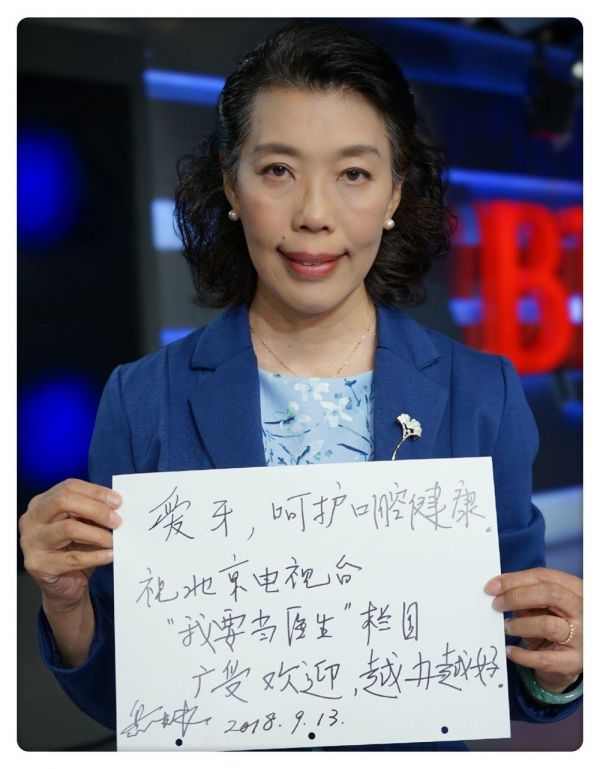 爱牙,呵护口腔健康.
祝北京电视台
"我要当医生"栏目
广受欢迎,越办越好.
2018.9.13.
B